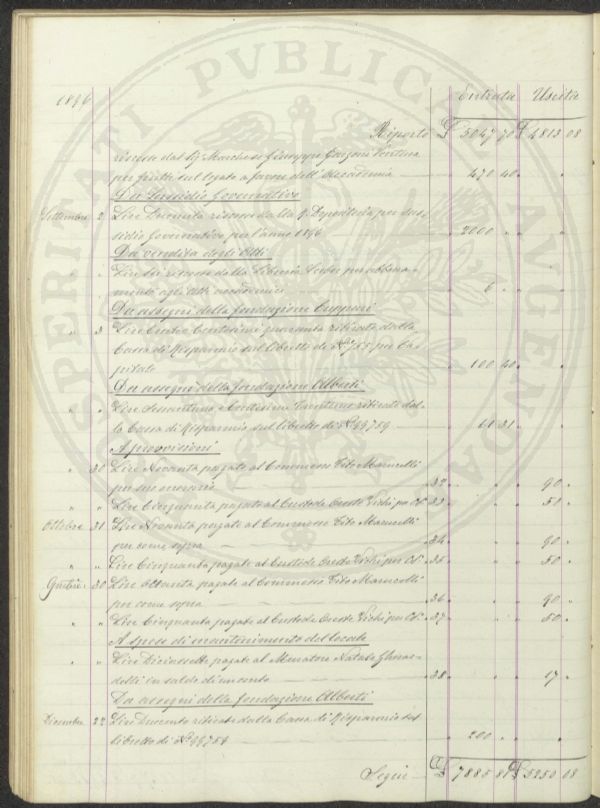 1896 Entrata Uscita
Riporto £ 5047 70 £ 4813 08
riscosse dal Sg. Marchese Giuseppe Garzoni Venturi
per frutti sul legato a favore dell'Accademia 470 40
Da Sussidio Governativo
Settembre 2 Lire Duemila riscosse dalla R. Depositeria per sus-
sidio Governativo per l'anno 1896 2000 " "
Da vendita degli Atti
" Lire Sei riscosse dalla Libreria per abbona-
mento agli Atti accademici 6 " "
Da assegni della fondazione Cuppari
" 3 Lire Cento e Centesimi quaranta ritirate dalla
Cassa di Risparmio sul libretto di per Ca-
pitale 100 40
Da assegni della fondazione Alberti
" " Lire Sessantuna e Centesimi trentuno ritirate dal-
la Cassa di Risparmio sul libretto di N° 99759 61 31
A provvisioni
" 30 Lire Novanta pagate al Commesso Tito Marucelli
per suo onorario 32 " " 90 "
" " Lire Cinquanta pagate al Custode Oreste Vichi per Cs. 33 " " 50 "
Ottobre 31 Lire Novanta pagate al Commesso Tito Marucelli
per come sopra 34 " " 90 "
" " Lire Cinquanta pagate al Custode Oreste Vichi per Cs. 35 " " 50 "
30 Lire Ottanta pagate al Commesso Tito Marucelli
per come sopra 36 " " 90 "
" " Lire Cinquanta pagate al Custode Oreste Vichi per Cs. 37 " " 50 "
A spese di mantenimento del locale
" " Lire Diciassette pagate al Muratore Natale Gherar-
delli in saldo di un conto 38 " " 17 "
Da assegni della fondazione Alberti
Dicembre 22 Lire Duecento ritirate dalla Cassa di Risparmio sul
libretto di N° 99759 200 " "
Segue £ 7885 81 £ 5250 08
PROSPERITATI PVBLICAE AVGENDAE